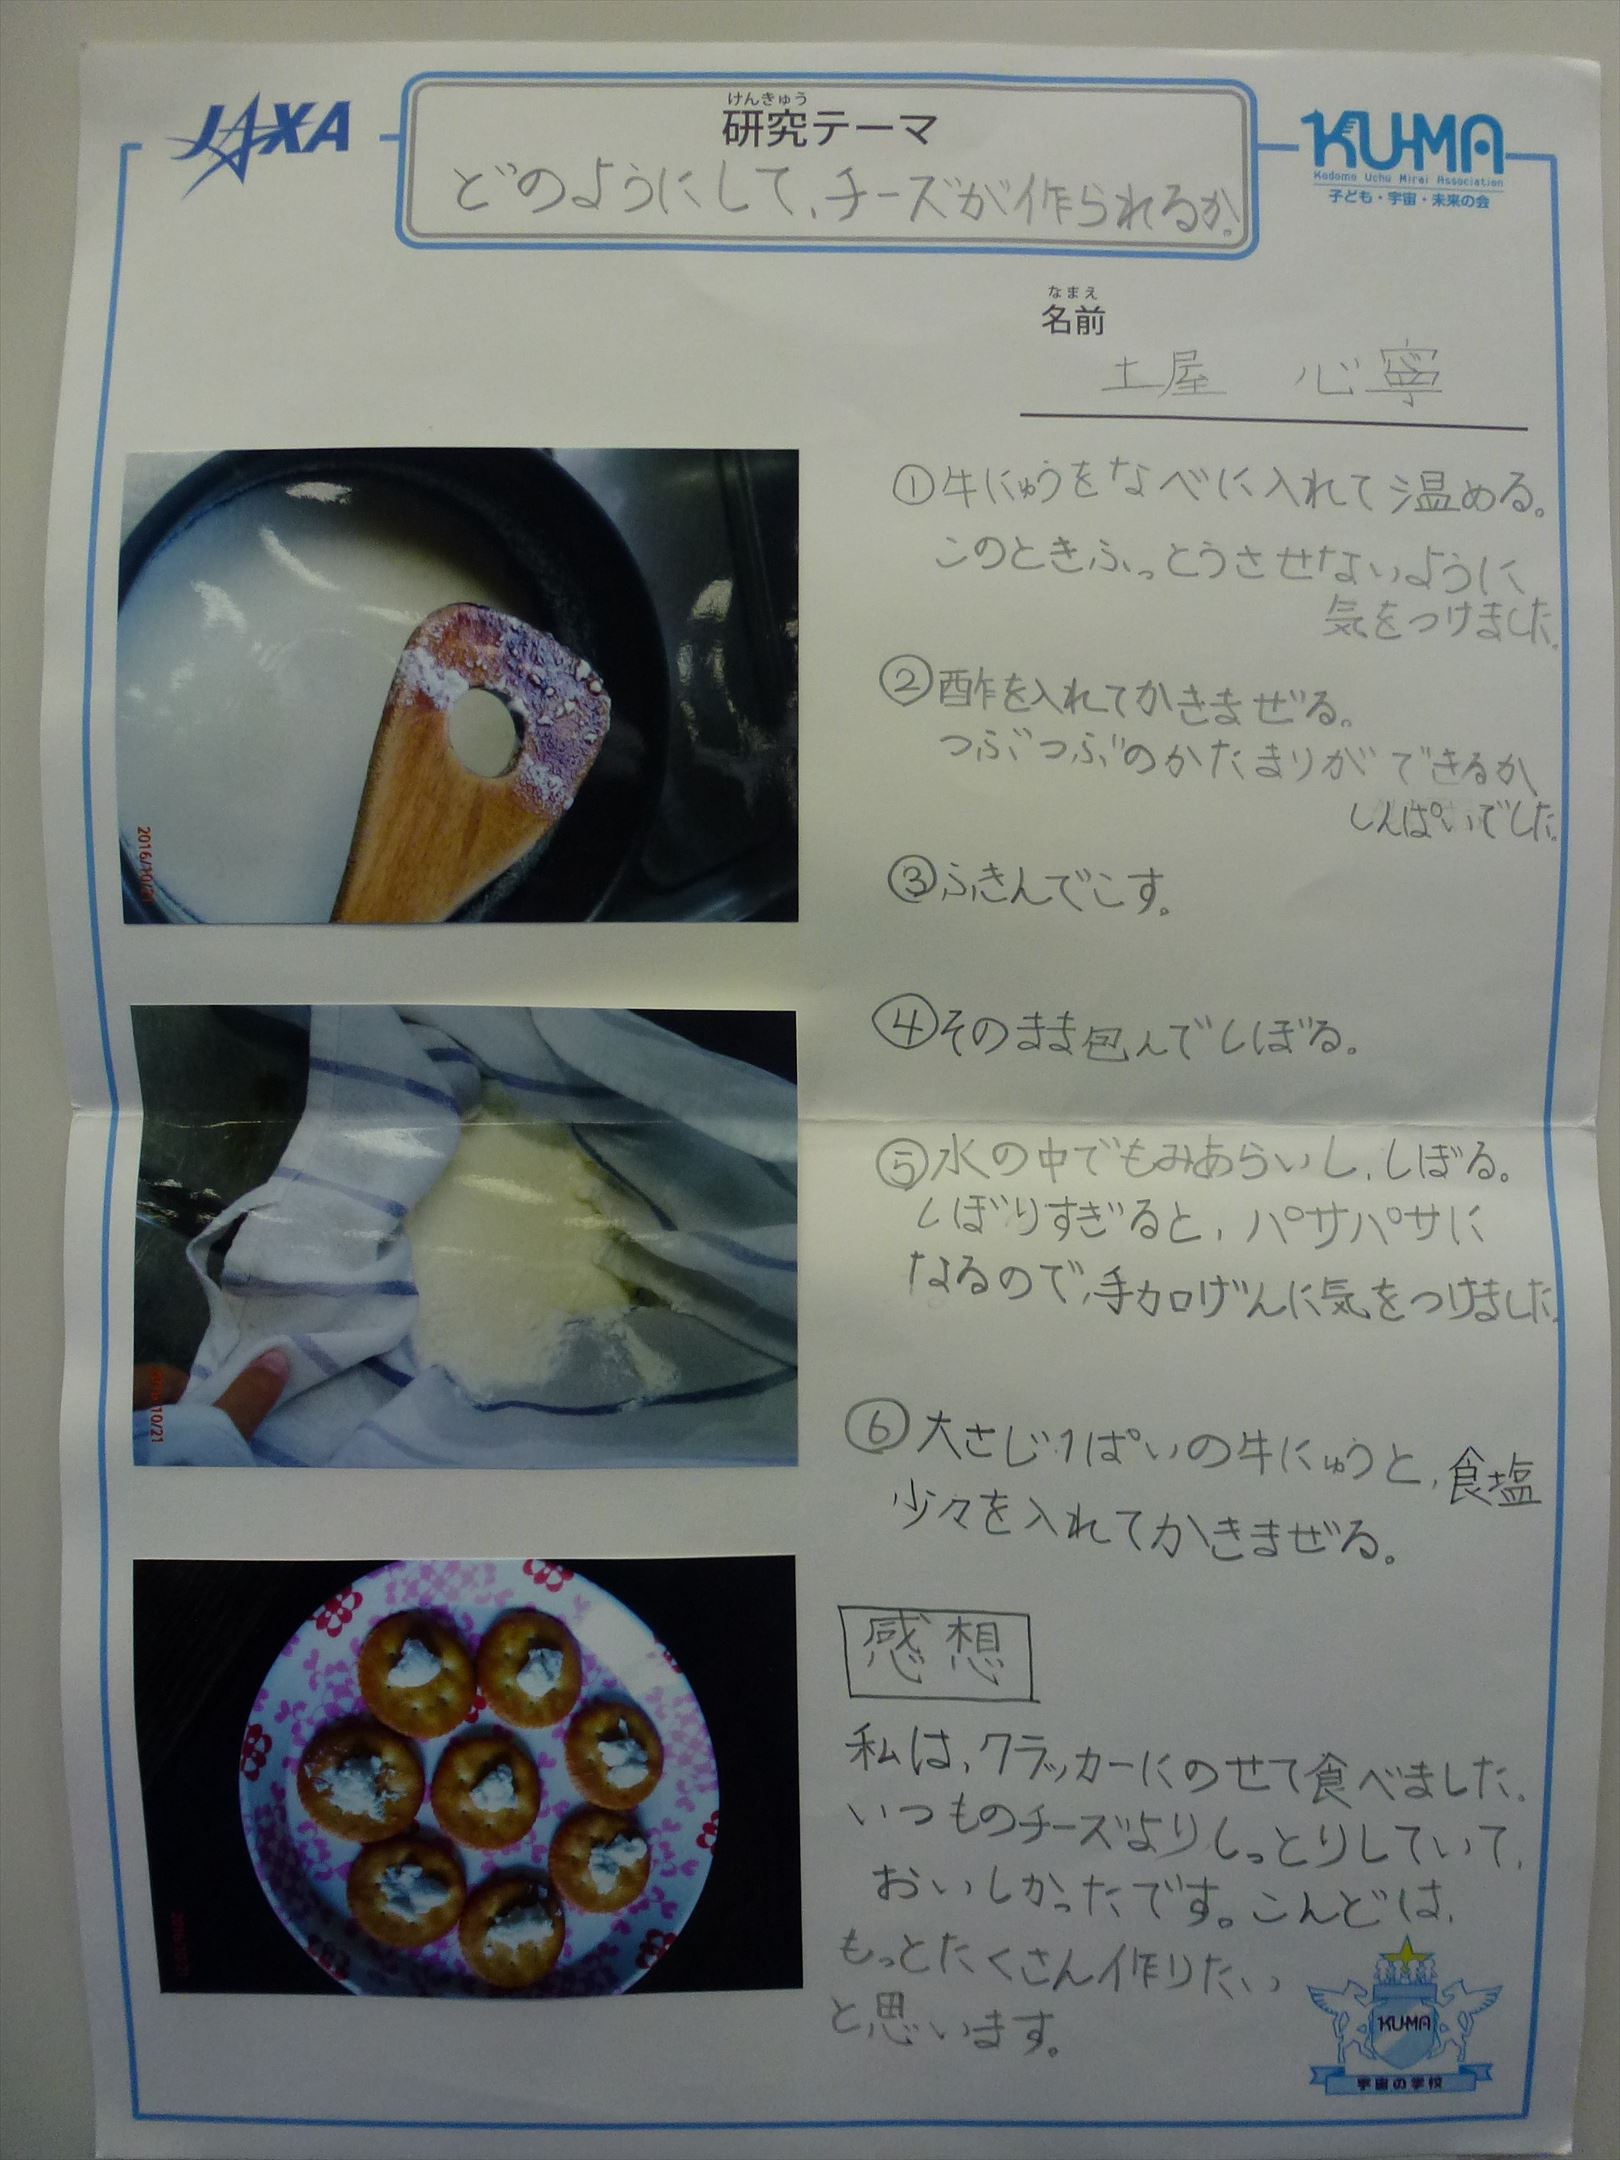 JAXA
けんきゅう
研究テーマ
どのようにして、チーズが作られるか。
KU-MA
Kodomo Uchu Mirai Association
子ども・宇宙・未来の会
なまえ
名前
土屋 心寧
①牛にゅうをなべに入れて温める。
このときふっとうさせないように
気をつけました。
②酢を入れてかきまぜる。
つぶつぶのかたまりができるか
しんぱいでした。
③ふきんでこす。
2016/10/21
④そのまま包んでしぼる。
⑤水の中でもみあらいし、しぼる。
しぼりすぎると、パサパサに
なるので、手加げんに気をつけました。
2016/10/21
⑥大さじ1ぱいの牛にゅうと、食塩
少々を入れてかきまぜる。
感想
私は、クラッカーにのせて食べました。
いつものチーズよりしっとりしていて、
おいしかったです。こんどは、
もっとたくさん作りたい
と思います。
KU-MA
宇宙の学校